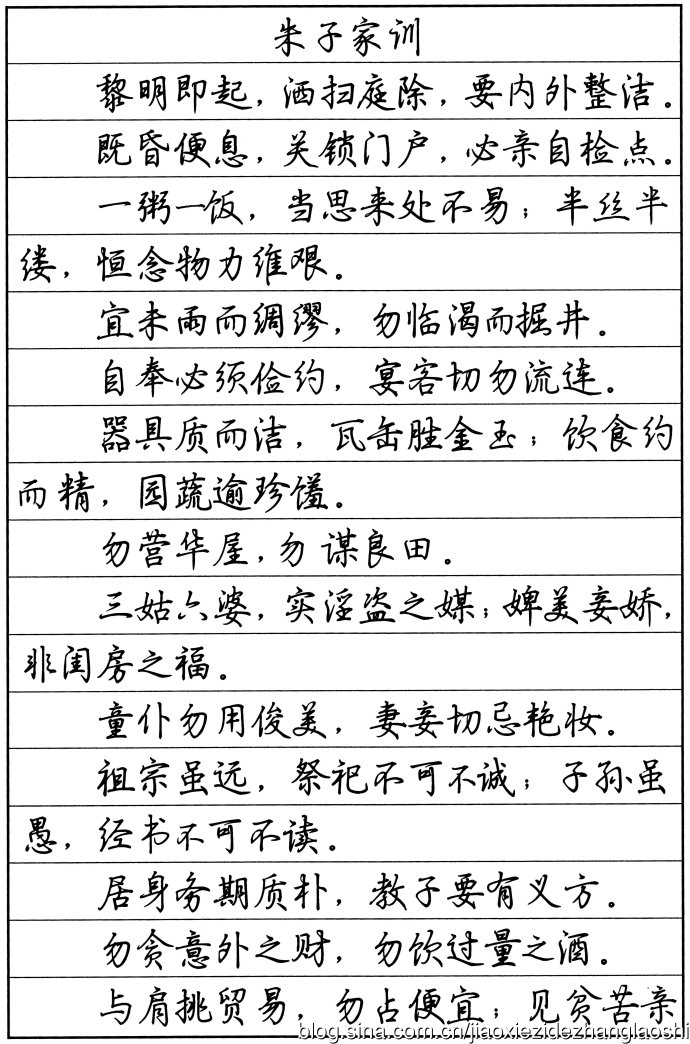 朱子家训
黎明即起，洒扫庭除，要内外整洁。
既昏便息，关锁门户，必亲自检点。
一粥一饭，当思来处不易；半丝半
缕，恒念物力维艰。
宜未雨而绸缪，勿临渴而掘井。
自奉必须俭约，宴客切勿流连。
器具质而洁，瓦缶胜金玉；饮食约
而精，园蔬逾珍馐。
勿营华屋，勿谋良田。
三姑六婆，实淫盗之媒；婢美妾娇，
非闺房之福。
童仆勿用俊美，妻妾切忌艳妆。
祖宗虽远，祭祀不可不诚；子孙虽
愚，经书不可不读。
居身务期质朴，教子要有义方。
勿贪意外之财，勿饮过量之酒。
与肩挑贸易，勿占便宜；见贫苦亲
blog.sina.com.cn/jiaoxiezidezhanglaoshi